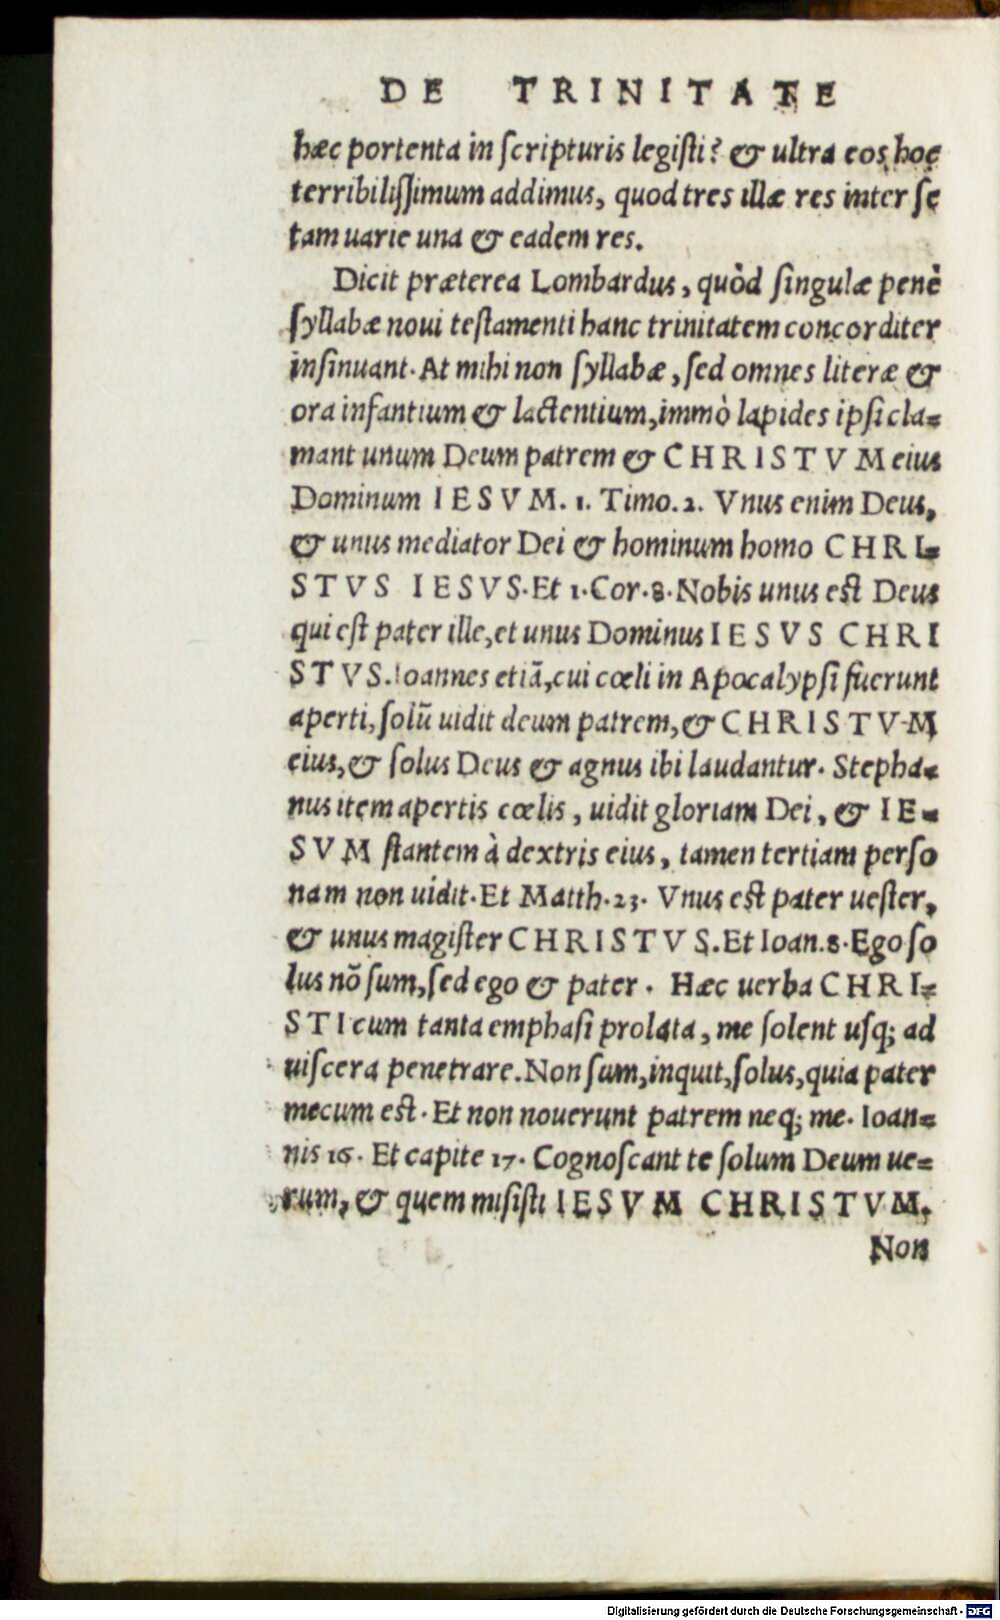 DE TRINITATE
hæc portenta in ſcripturis legiſti? & ultra eos hoc
terribiliſſimum addimus, quod tres illæ res inter ſe
tam uarie una & eadem res.
Dicit præterea Lombardus, quòd ſingulæ penè
ſyllabæ noui teſtamenti hanc trinitatem concorditer
inſinuant. At mihi non ſyllabæ, ſed omnes literæ &
ora infantium & lactentium, immò lapides ipſi cla=
mant unum Deum patrem & CHRISTVM eius
Dominum IESVM. 1. Timo. 2. Vnus enim Deus,
& unus mediator Dei & hominum homo CHRI=
STVS IESVS. Et 1. Cor. 8. Nobis unus eſt Deus
qui eſt pater ille, et unus Dominus IESVS CHRI
STVS. Ioannes etiã, cui cœli in Apocalypſi fuerunt
aperti, ſolũ uidit deum patrem, & CHRISTVM
eius, & ſolus Deus & agnus ibi laudantur. Stepha=
nus item apertis cœlis, uidit gloriam Dei, & IE=
SVM ſtantem à dextris eius, tamen tertiam perſo
nam non uidit. Et Matth. 23. Vnus eſt pater ueſter,
& unus magiſter CHRISTVS. Et Ioan. 8. Ego ſo
lus nõ ſum, ſed ego & pater. Hæc uerba CHRI=
STI cum tanta emphaſi prolata, me ſolent uſq; ad
uiſcera penetrare. Non ſum, inquit, ſolus, quia pater
mecum eſt. Et non nouerunt patrem neq; me. Ioan=
nis 16. Et capite 17. Cognoſcant te ſolum Deum ue=
rum, & quem miſiſti IESVM CHRISTVM.
Non
Digitalisierung gefördert durch die Deutsche Forschungsgemeinschaft - DFG